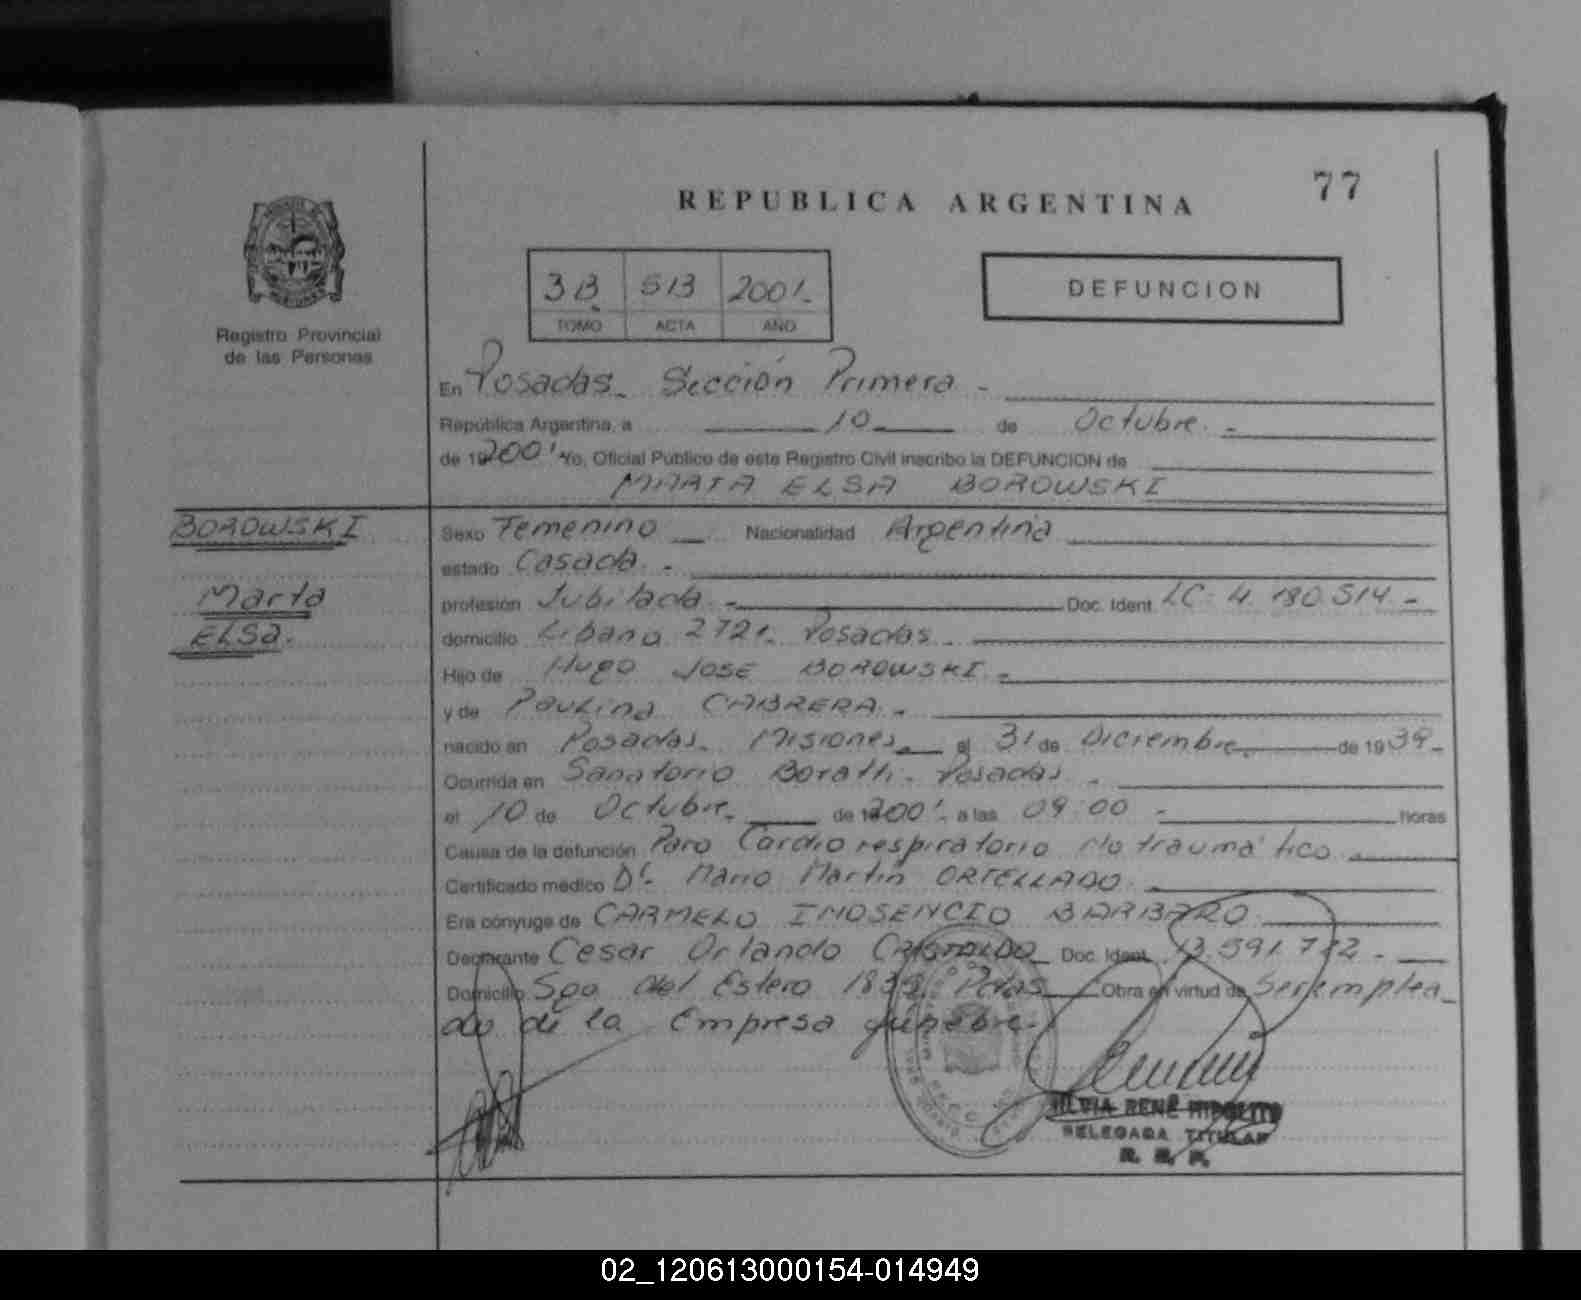 77
REPUBLICA ARGENTINA
3B 513 2001.-
TOMO ACTA AÑO
DEFUNCION
Registro Provincial
de las Personas
En Posadas.- Sección Primera -
República Argentina, a 10 de Octubre.-
de 19 2001. Yo, Oficial Público de este Registro Civil inscribo la DEFUNCION de
MARTA ELSA BOROWSKI
BOROWSKI
Marta
ELSa.
Sexo Femenino Nacionalidad Argentina
estado Casada.-
profesión Jubilada.- Doc. Ident. LC- 4.180.514.-
domicilio Libano 2721.- Posadas.-
Hijo de Hugo JOSE BOROWSKI.-
y de Paulina CABRERA.-
nacido en Posadas.- Misiones.- el 31 de Diciembre.- de 19 39.-
Ocurrida en Sanatorio Boratti.- Posadas.-
el 10 de Octubre.- de 19 2001.- a las 09:00 - horas
Causa de la defunción Paro Cardiorespiratorio No traumático.-
Certificado médico Dr.- Mario Martin ORTELLADO.-
Era cónyuge de CARMELO INOSENCIO BARBARO.-
Declarante Cesar Orlando Doc. Ident. 13.591.722.-
Domicilio Sgo del Estero Pdas Obra en virtud de Ser emplea_
do de la Empresa funebre.-
SILVIA RENÉ HIPOLITO
DELEGADA TITULAR
R. E. P.
02_120613000154-014949